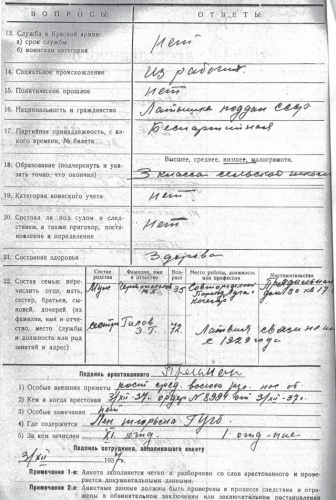 ВОПРОСЫ: ОТВЕТЫ:
13. Служба в Красной армии:
а) срок службы
б) воинская категория
нет
14. Социальное происхождение
Из рабочих
15. Политическое прошлое
нет
16. Национальность и гражданство
Латышка поддан СССР
17. Партийная принадлежность, с какого времени, № билета
Беспартийная
18. Образование (подчеркнуть и указать точно, что окончил)
Высшее, среднее, низшее, малограмота.
3 класса сельской школы
19. Категория воинского учета
нет
20. Состоял ли под судом и следствием, а также приговор, постановление и определение
нет
21. Состояние здоровья
Здорова
22. Состав семьи: перечислить отца, мать, сестер, братьев, сыновей, дочерей (их фамилии, имя и отчество, место службы и должность или род занятий и адрес)
Состав родства
Фамилия, имя и отчество
Возраст
Место работы, должность или профессия
Местожительство
Муж 35
дом 30 кв 17
сестра 72 Латвия связи не
с 1929 года
Подпись арестованного
1) Особые внешние приметы рост сред.
2) Кем и когда арестован 3/XII-37. ордер № от 3/XII-37г.
3) Особые замечания нет
4) Где содержится
5) За кем зачислен XI отд. 1 отд-ние
Подпись сотрудника, заполнившего анкету
3/XII 1937
Примечание 1-е: Анкета заполняется четко и разборчиво со слов арестованного и проверяется документальными данными.
Примечание 2-е: Анкетные данные должны быть проверены в процессе следствия и отражены в обвинительном заключении или заключительном постановлении